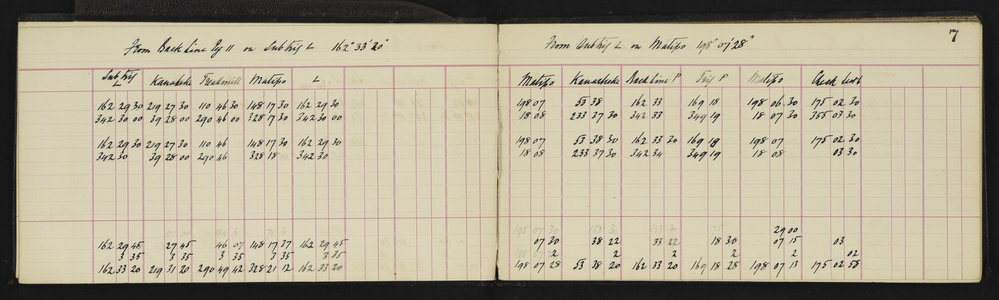 7
From Back Line Pg 11 on Sub Trig L 162° 33' 20"
Sub Trig L Kawakeke Treadmill Matipo L
162 29 30 219 27 30 110 46 30 148 17 30 162 29 30
342 30 00 39 28 00 290 46 00 328 17 30 342 30 00
162 29 30 219 27 30 110 46 148 17 30 162 29 30
342 30 39 28 00 290 46 328 18 342 30
162 29 45 27 45 46 07 148 17 37 162 29 45
3 35 3 35 3 35 3 35 3 35
162 33 20 219 31 20 290 49 42 328 21 12 162 33 20
From Sub Trig L on Matipo 198° 07' 28"
Matipo Kawakeke Back Line P Trig P Matipo Check
198 07 53 38 162 33 169 18 198 06 30 175 02 30
18 08 233 37 30 342 33 349 19 18 07 30 355 03 30
198 07 53 38 30 162 33 30 169 19 198 07 175 02 30
18 08 233 37 30 342 34 349 19 18 08 03 30
29 00
07 30 38 22 33 22 18 30 07 15 03
2 2 2 2 2 02
198 07 28 53 38 20 162 33 20 169 18 28 198 07 13 175 02 58